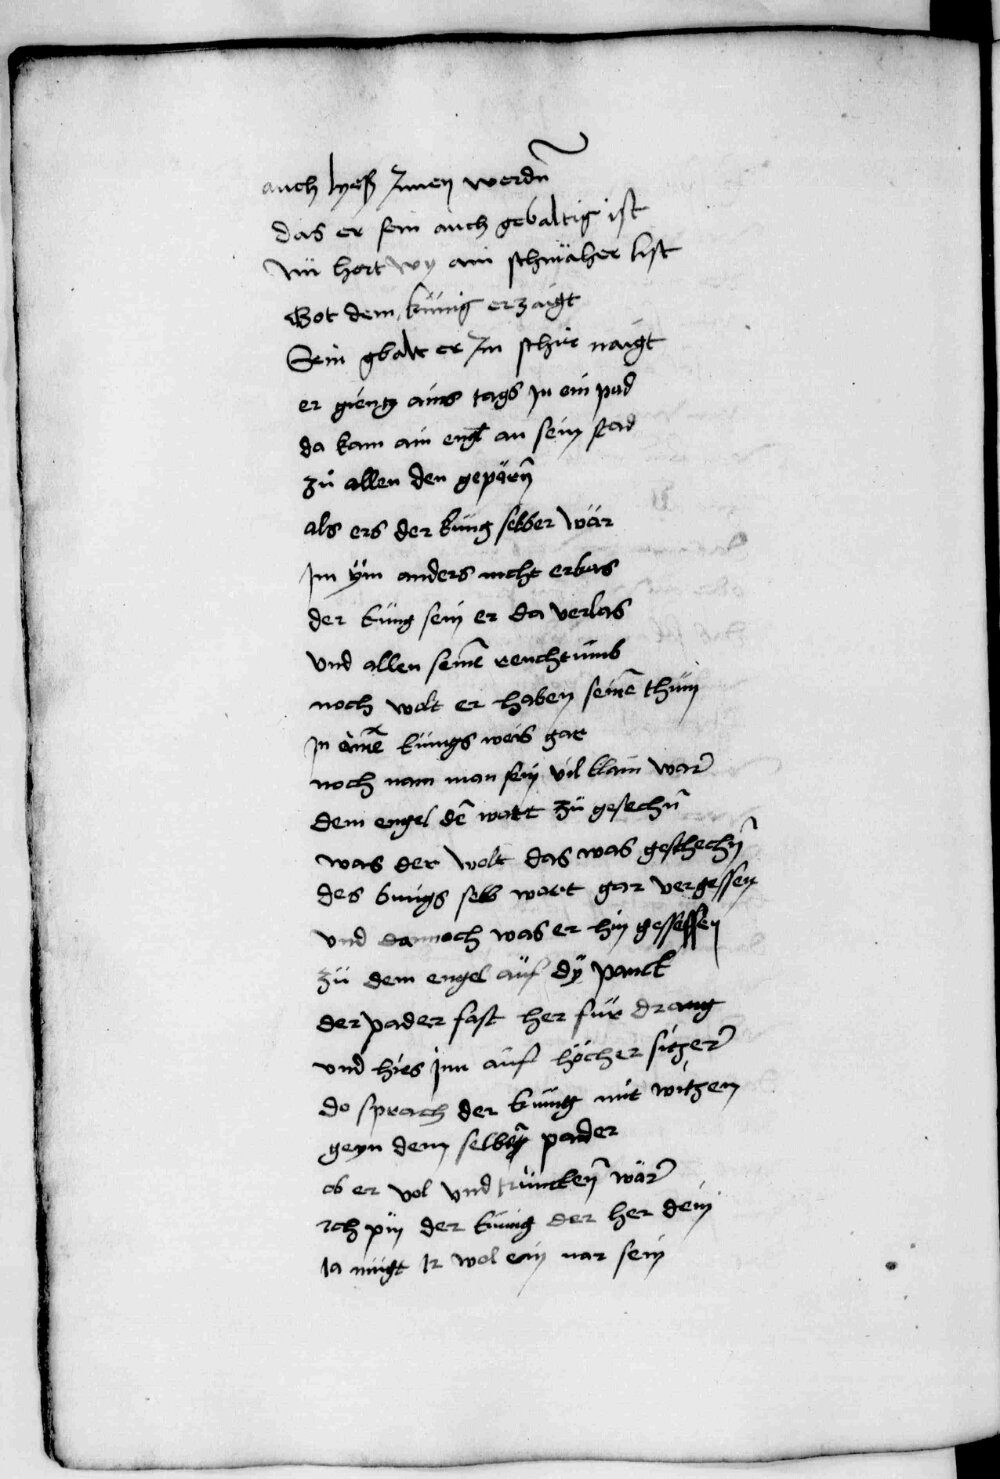 auch lyeß Innen werdn̄
das er sein auch gebaltig ist
Nü hort wy ain schmäher list
Got dem künig erzaigt
Sein gbalt er Im schir naigt
er gieng ains tags In ein pad
da kam ain engl an sein stad
zů allen den gepärn̄
als ers der küng selber wär
Im ÿm anders nicht erkas
der küng sein er da verlas
vnd allen seine͂ reychtumb
noch wolt er haben seine͂ thum
In aine͂ küngs weis gar
noch nam man sein vil klain war
dem engel de͂ wart zü gesechn̄
was der wolt das was geschechn̄
des künigs selb wart gar vergessen
vnd dannoch was er hin gesessen
zü dem engel aüf dÿ panck
der pader fast her für drang
vnd hies Jnn aüf höcher sitzen
do sprach der künig mit witzen
geyn dem selben pader
ob er vol vnd trüncken wär
Ich pin der künig der her dein
Ja mügt Ir wol ein nar sein